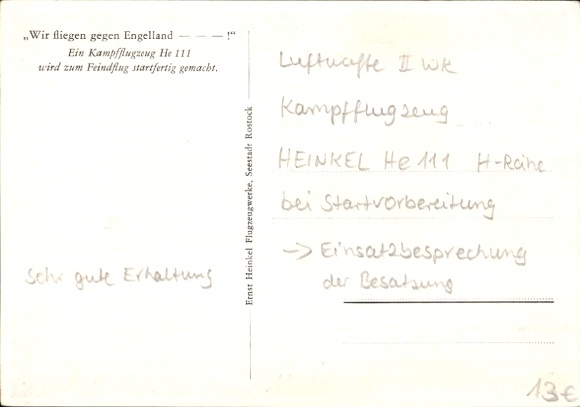 „Wir fliegen gegen Engelland — — — !“
Ein Kampfflugzeug He 111
wird zum Feindflug startfertig gemacht.
Sehr gute Erhaltung
Ernst Heinkel Flugzeugwerke, Seestadt Rostock
Luftwaffe II WK
Kampfflugzeug
HEINKEL He 111 H-Reihe
bei Startvorbereitung
-> Einsatzbesprechung
der Besatzung
13€